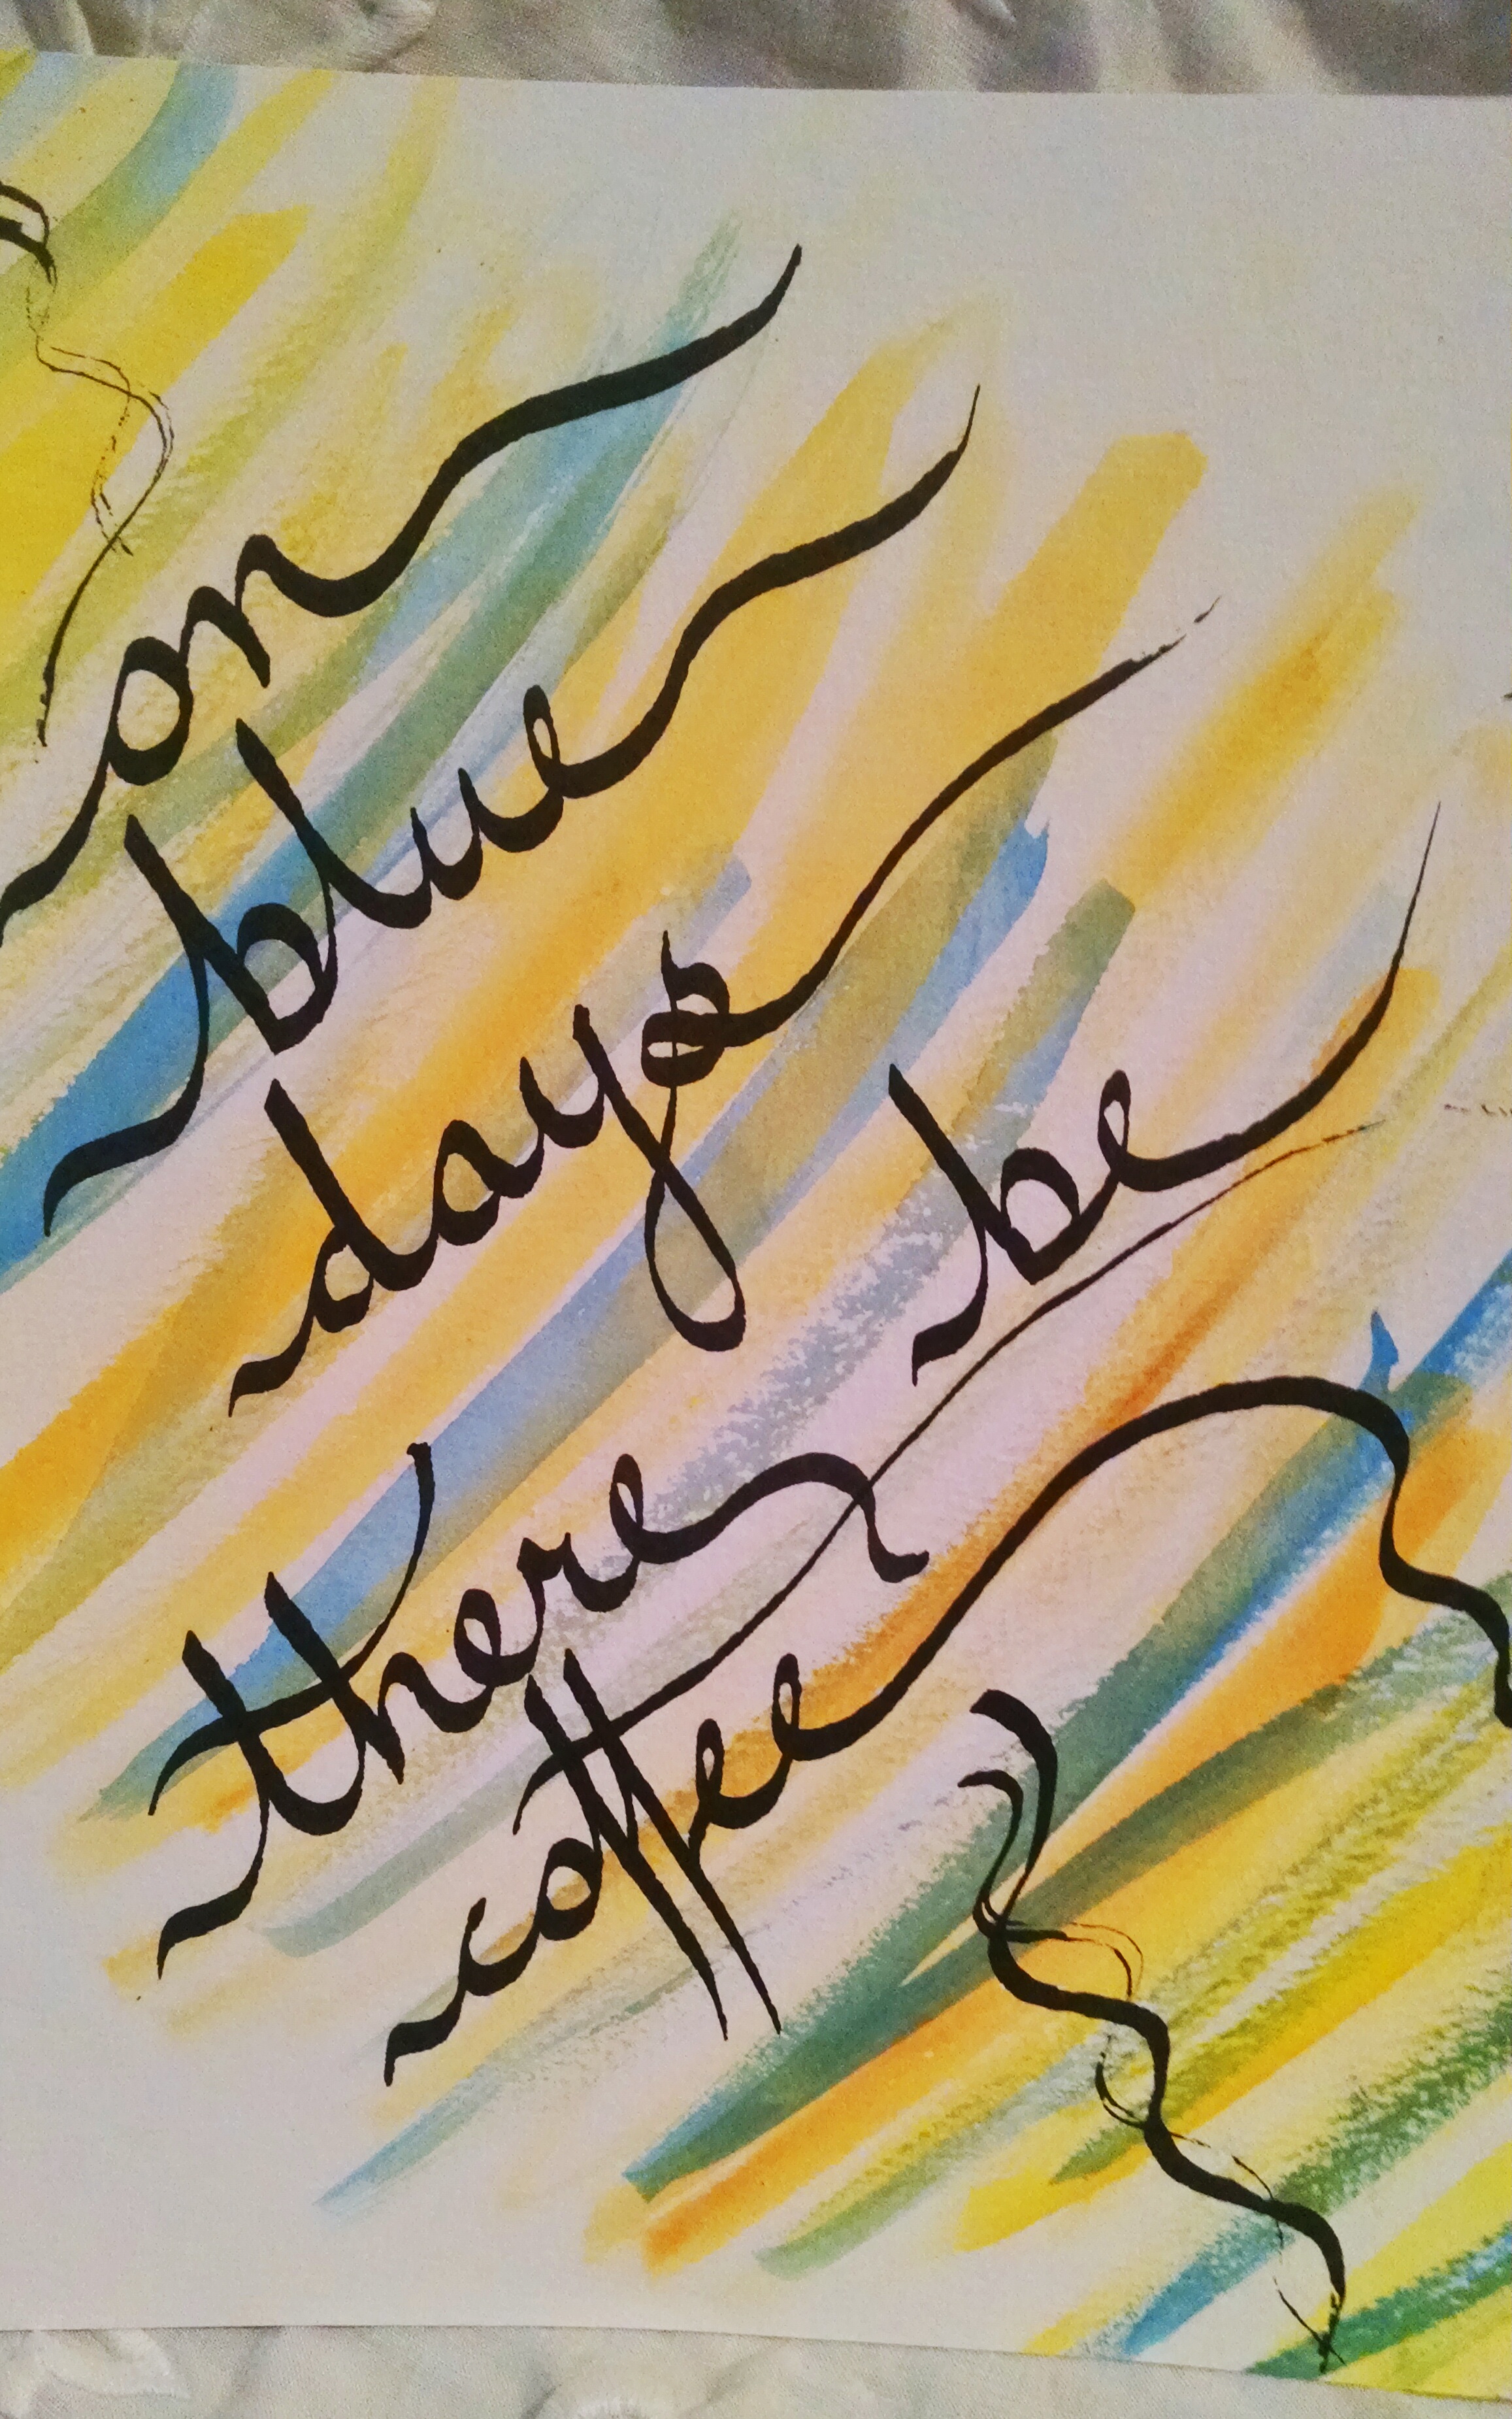 on
blue
days
there be
coffee